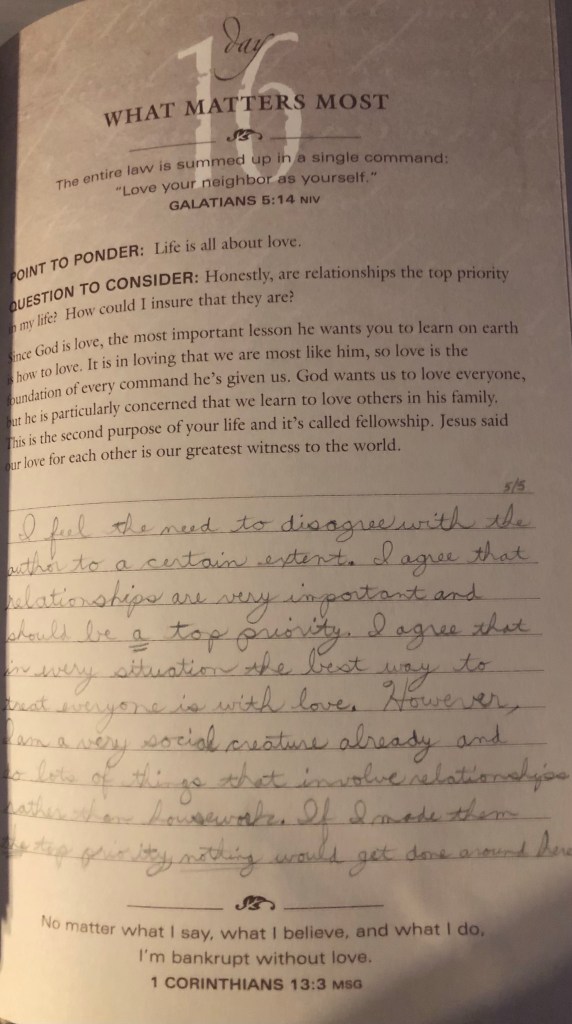 day
16
WHAT MATTERS MOST
The entire law is summed up in a single command:
"Love your neighbor as yourself."
GALATIANS 5:14 NIV
POINT TO PONDER: Life is all about love.
QUESTION TO CONSIDER: Honestly, are relationships the top priority
in my life? How could I insure that they are?
Since God is love, the most important lesson he wants you to learn on earth
is how to love. It is in loving that we are most like him, so love is the
foundation of every command he's given us. God wants us to love everyone,
but he is particularly concerned that we learn to love others in his family.
This is the second purpose of your life and it's called fellowship. Jesus said
our love for each other is our greatest witness to the world.
5/5
I feel the need to disagree with the
author to a certain extent. I agree that
relationships are very important and
should be a top priority. I agree that
in every situation the best way to
treat everyone is with love. However,
I am a very social creature already and
do lots of things that involve relationships
rather than housework. If I made them
the top priority, nothing would get done around here
No matter what I say, what I believe, and what I do,
I'm bankrupt without love.
1 CORINTHIANS 13:3 MSG